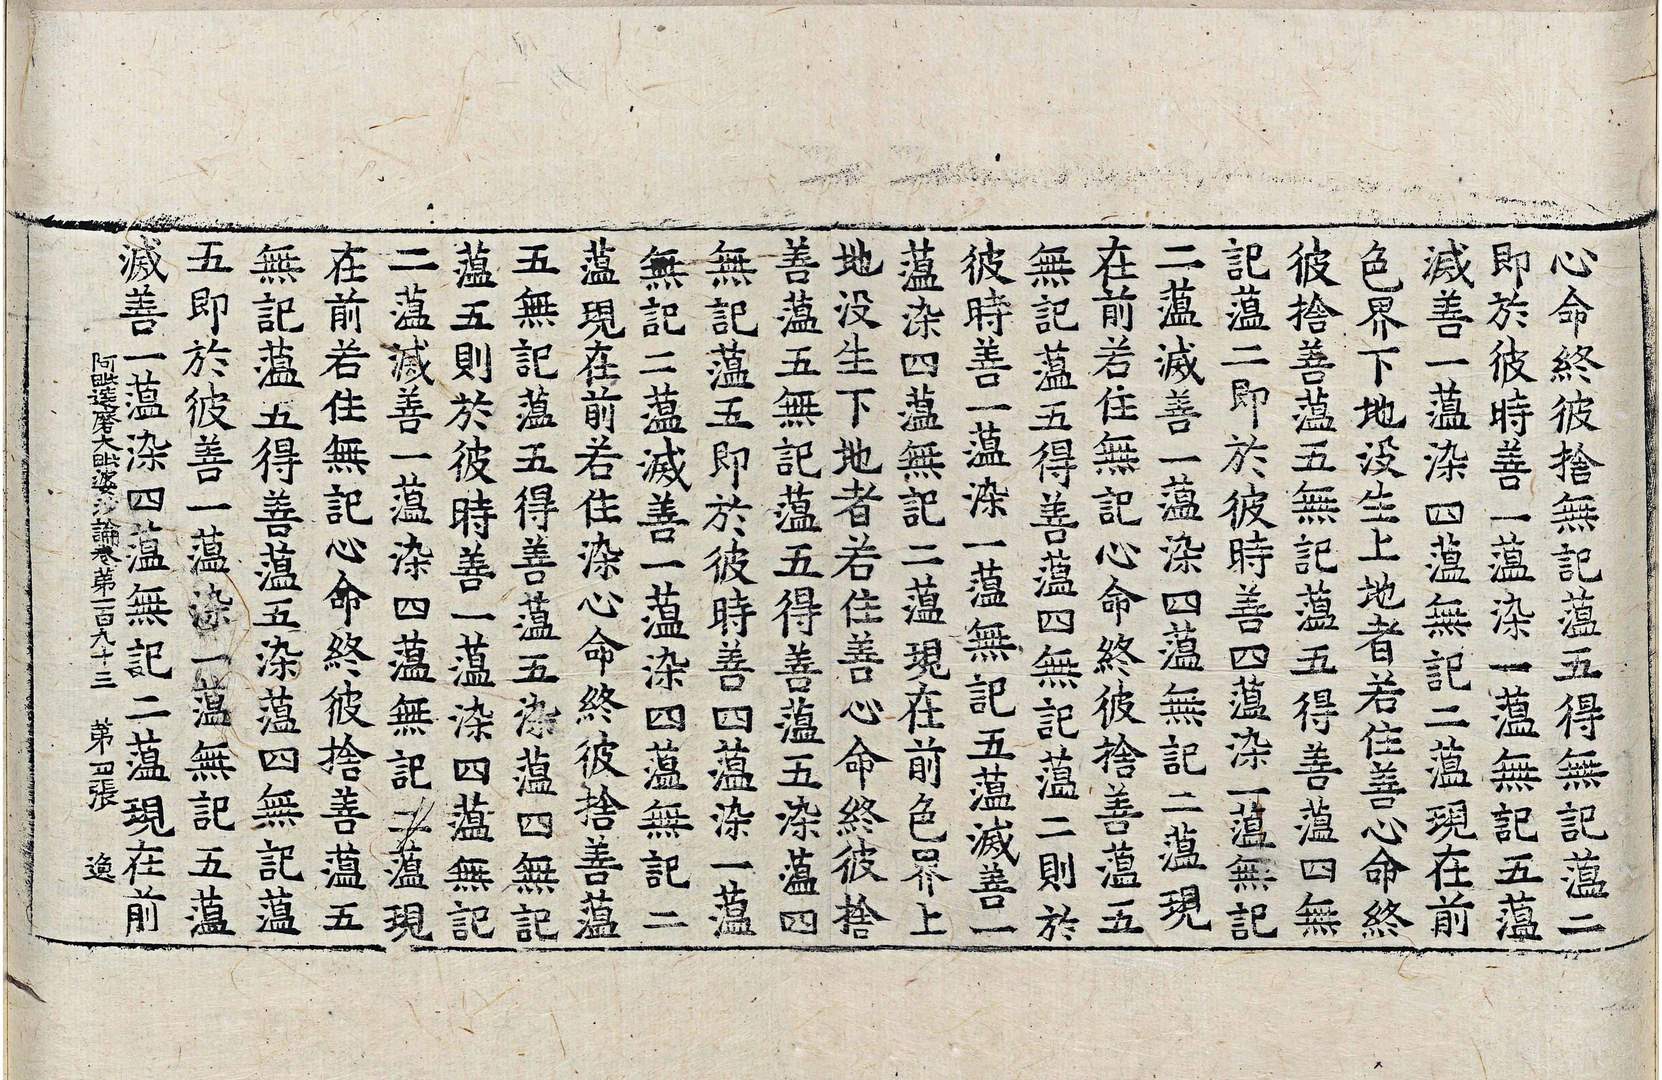 心命終彼捨無記蕰五得無記蕰二
即於彼時善一蕰染一蕰無記五蕰
滅善一蕰染四蕰無記二蕰現在前
色界下地没生上地者若住善心命終
彼捨善蕰五無記蕰五得善蕰四無
記蕰二即於彼時善四蕰染一蕰無記
二蕰滅善一蕰染四蕰無記二蕰現
在前若住無記心命終彼捨善蕰五
無記蕰五得善蕰四無記蕰二則於
彼時善一蕰染一蕰無記五蕰滅善一
蕰染四蕰無記二蕰現在前色界上
地没生下地者若住善心命終彼捨
善蕰五無記蕰五得善蕰五染蕰四
無記蕰五即於彼時善四蕰染一蕰
無記二蕰滅善一蕰染四蕰無記二
蕰現在前若住染心命終彼捨善蕰
五無記蕰五得善蕰五染蕰四無記
蕰五則於彼時善一蕰染四蕰無記
二蕰滅善一蕰染四蕰無記二蕰現
在前若住無記心命終彼捨善蕰五
無記蕰五得善蕰五染蕰四無記蕰
五即於彼善一蕰染一蕰無記五蕰
滅善一蕰染四蕰無記二蕰現在前
阿毗達磨大毗婆沙論卷第一百九十三 第四張 逸